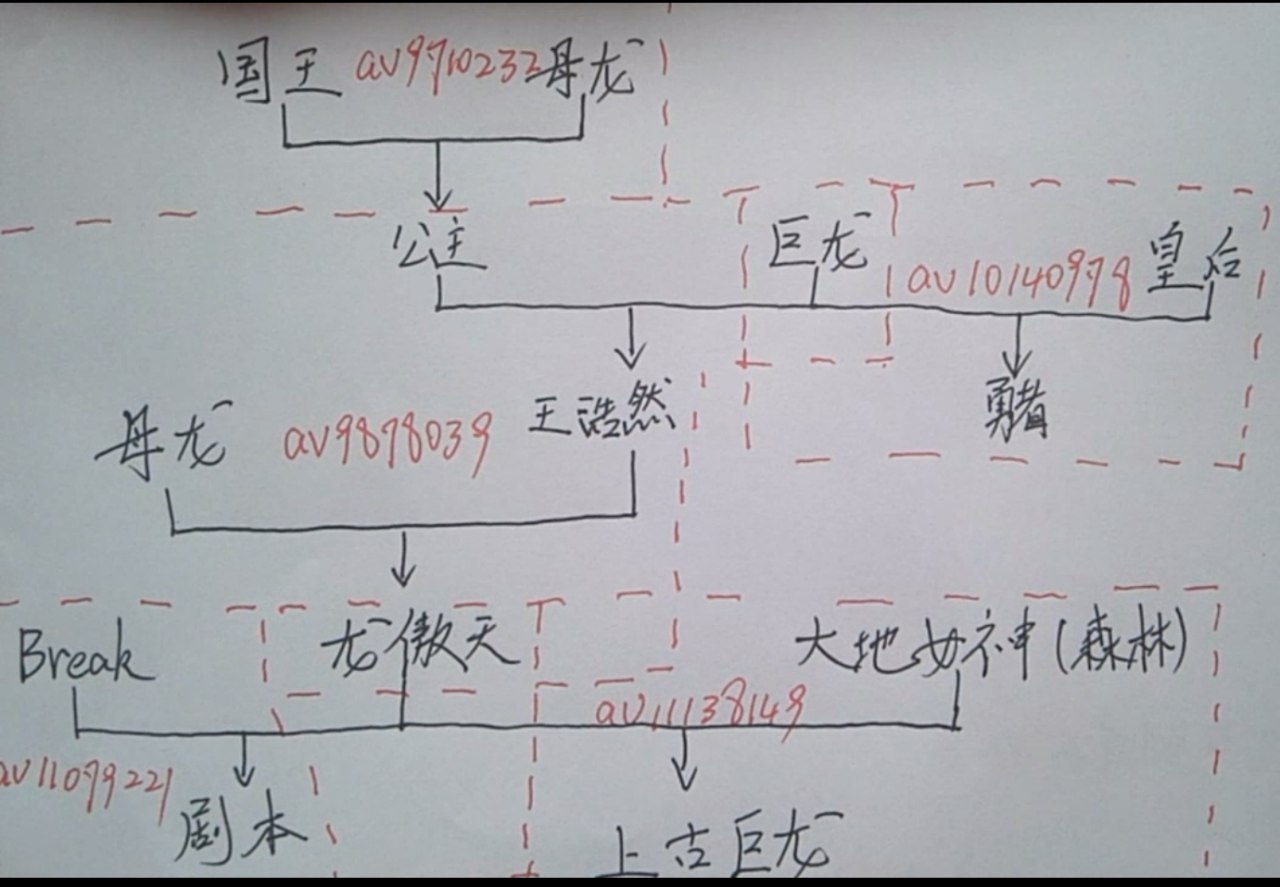 国王 av9710232 母龙
公主
巨龙 av10140978 皇后
母龙 av9898039 王浩然
勇者
Break 龙傲天 大地女神(森林)
av11138149
av11079221
剧本
上古巨龙